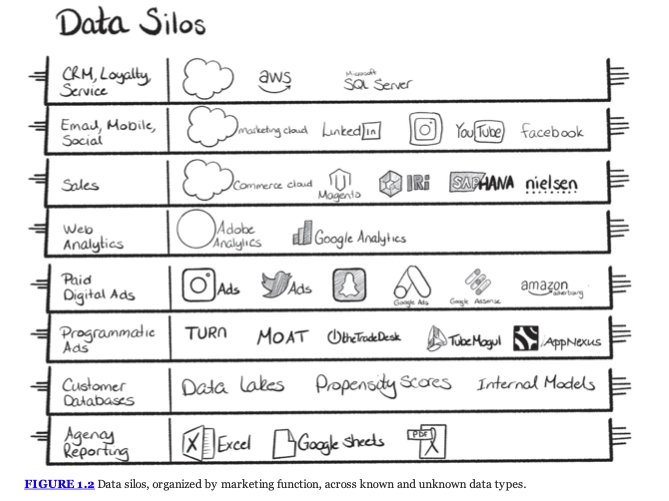 Data Silos
CRM, Loyalty,
Service
aws
Microsoft
SQL Server
Email, Mobile,
Social
marketing cloud
Linked in
YouTube
facebook
Sales
Commerce cloud
Magento
IRi
SAP HANA
nielsen
Web
Analytics
Adobe
Analytics
Google Analytics
Paid
Digital Ads
Ads
Ads
Google Ads
Google Adsense
amazon
advertising
Programmatic
Ads
TURN
MOAT
theTradeDesk
TubeMogul
AppNexus
Customer
Databases
Data Lakes
Propensity Scores
Internal Models
Agency
Reporting
X Excel
Google Sheets
PDF
FIGURE 1.2 Data silos, organized by marketing function, across known and unknown data types.